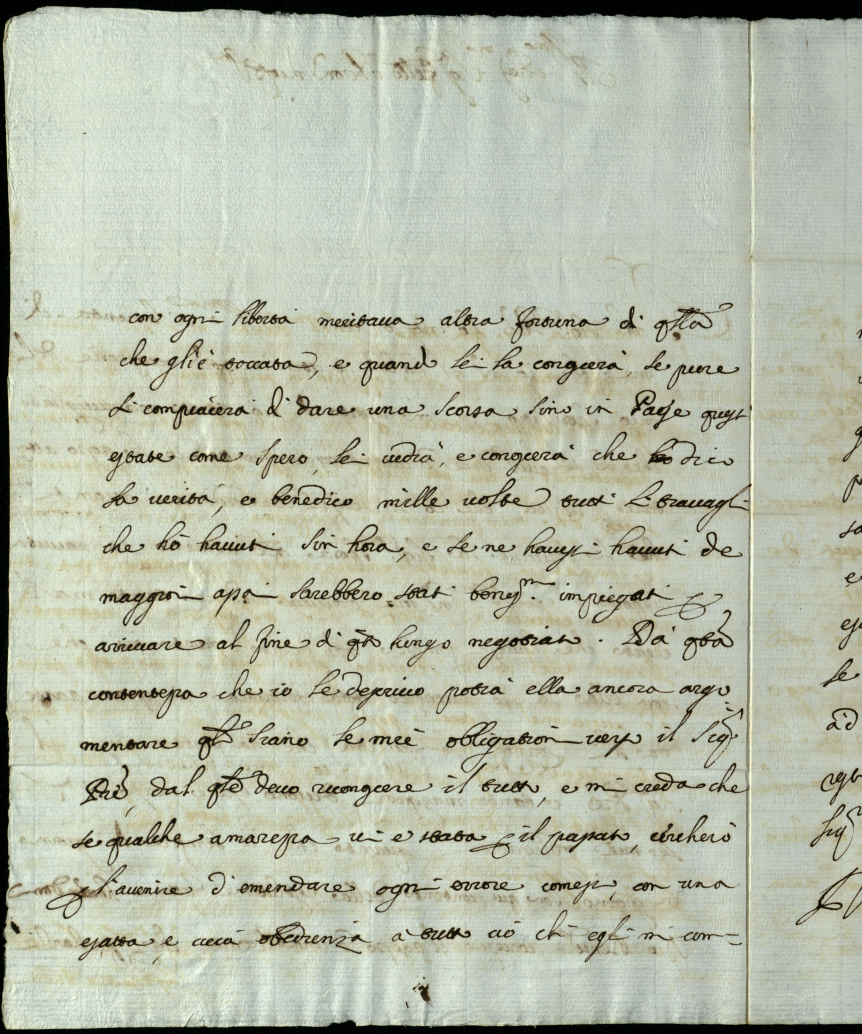 con ogni libertà meritaua altra fortuna di qlla
che gliè toccata, e quando lei la conoscerà, se pure
si compiacerà di dare una scorsa sino in Paese quest
estate come spero, lei uedrà, e conoscerà che dico
la uerità, e benedico mille uolte tutti li trauagli
che hò hauuti sin hora, e se ne hauessi hauuti de
maggiori assai sarebbero stati beniss.mo impiegati p
arriuare al fine di qto lungo negotiato. Da qsta
contentezza che io le descriuo potrà ella ancora argu
mentare qli siano le mie obligationi uerso il Sigr
Pre, dal qle deuo riconoscere il tutto, e mi creda che
se qualche amarezza ui è stata p il passato, cercherò
p l'auenire d'emendare ogni errore comesso, con una
esatta e cieca obedienza a tutto ciò che egli mi com=